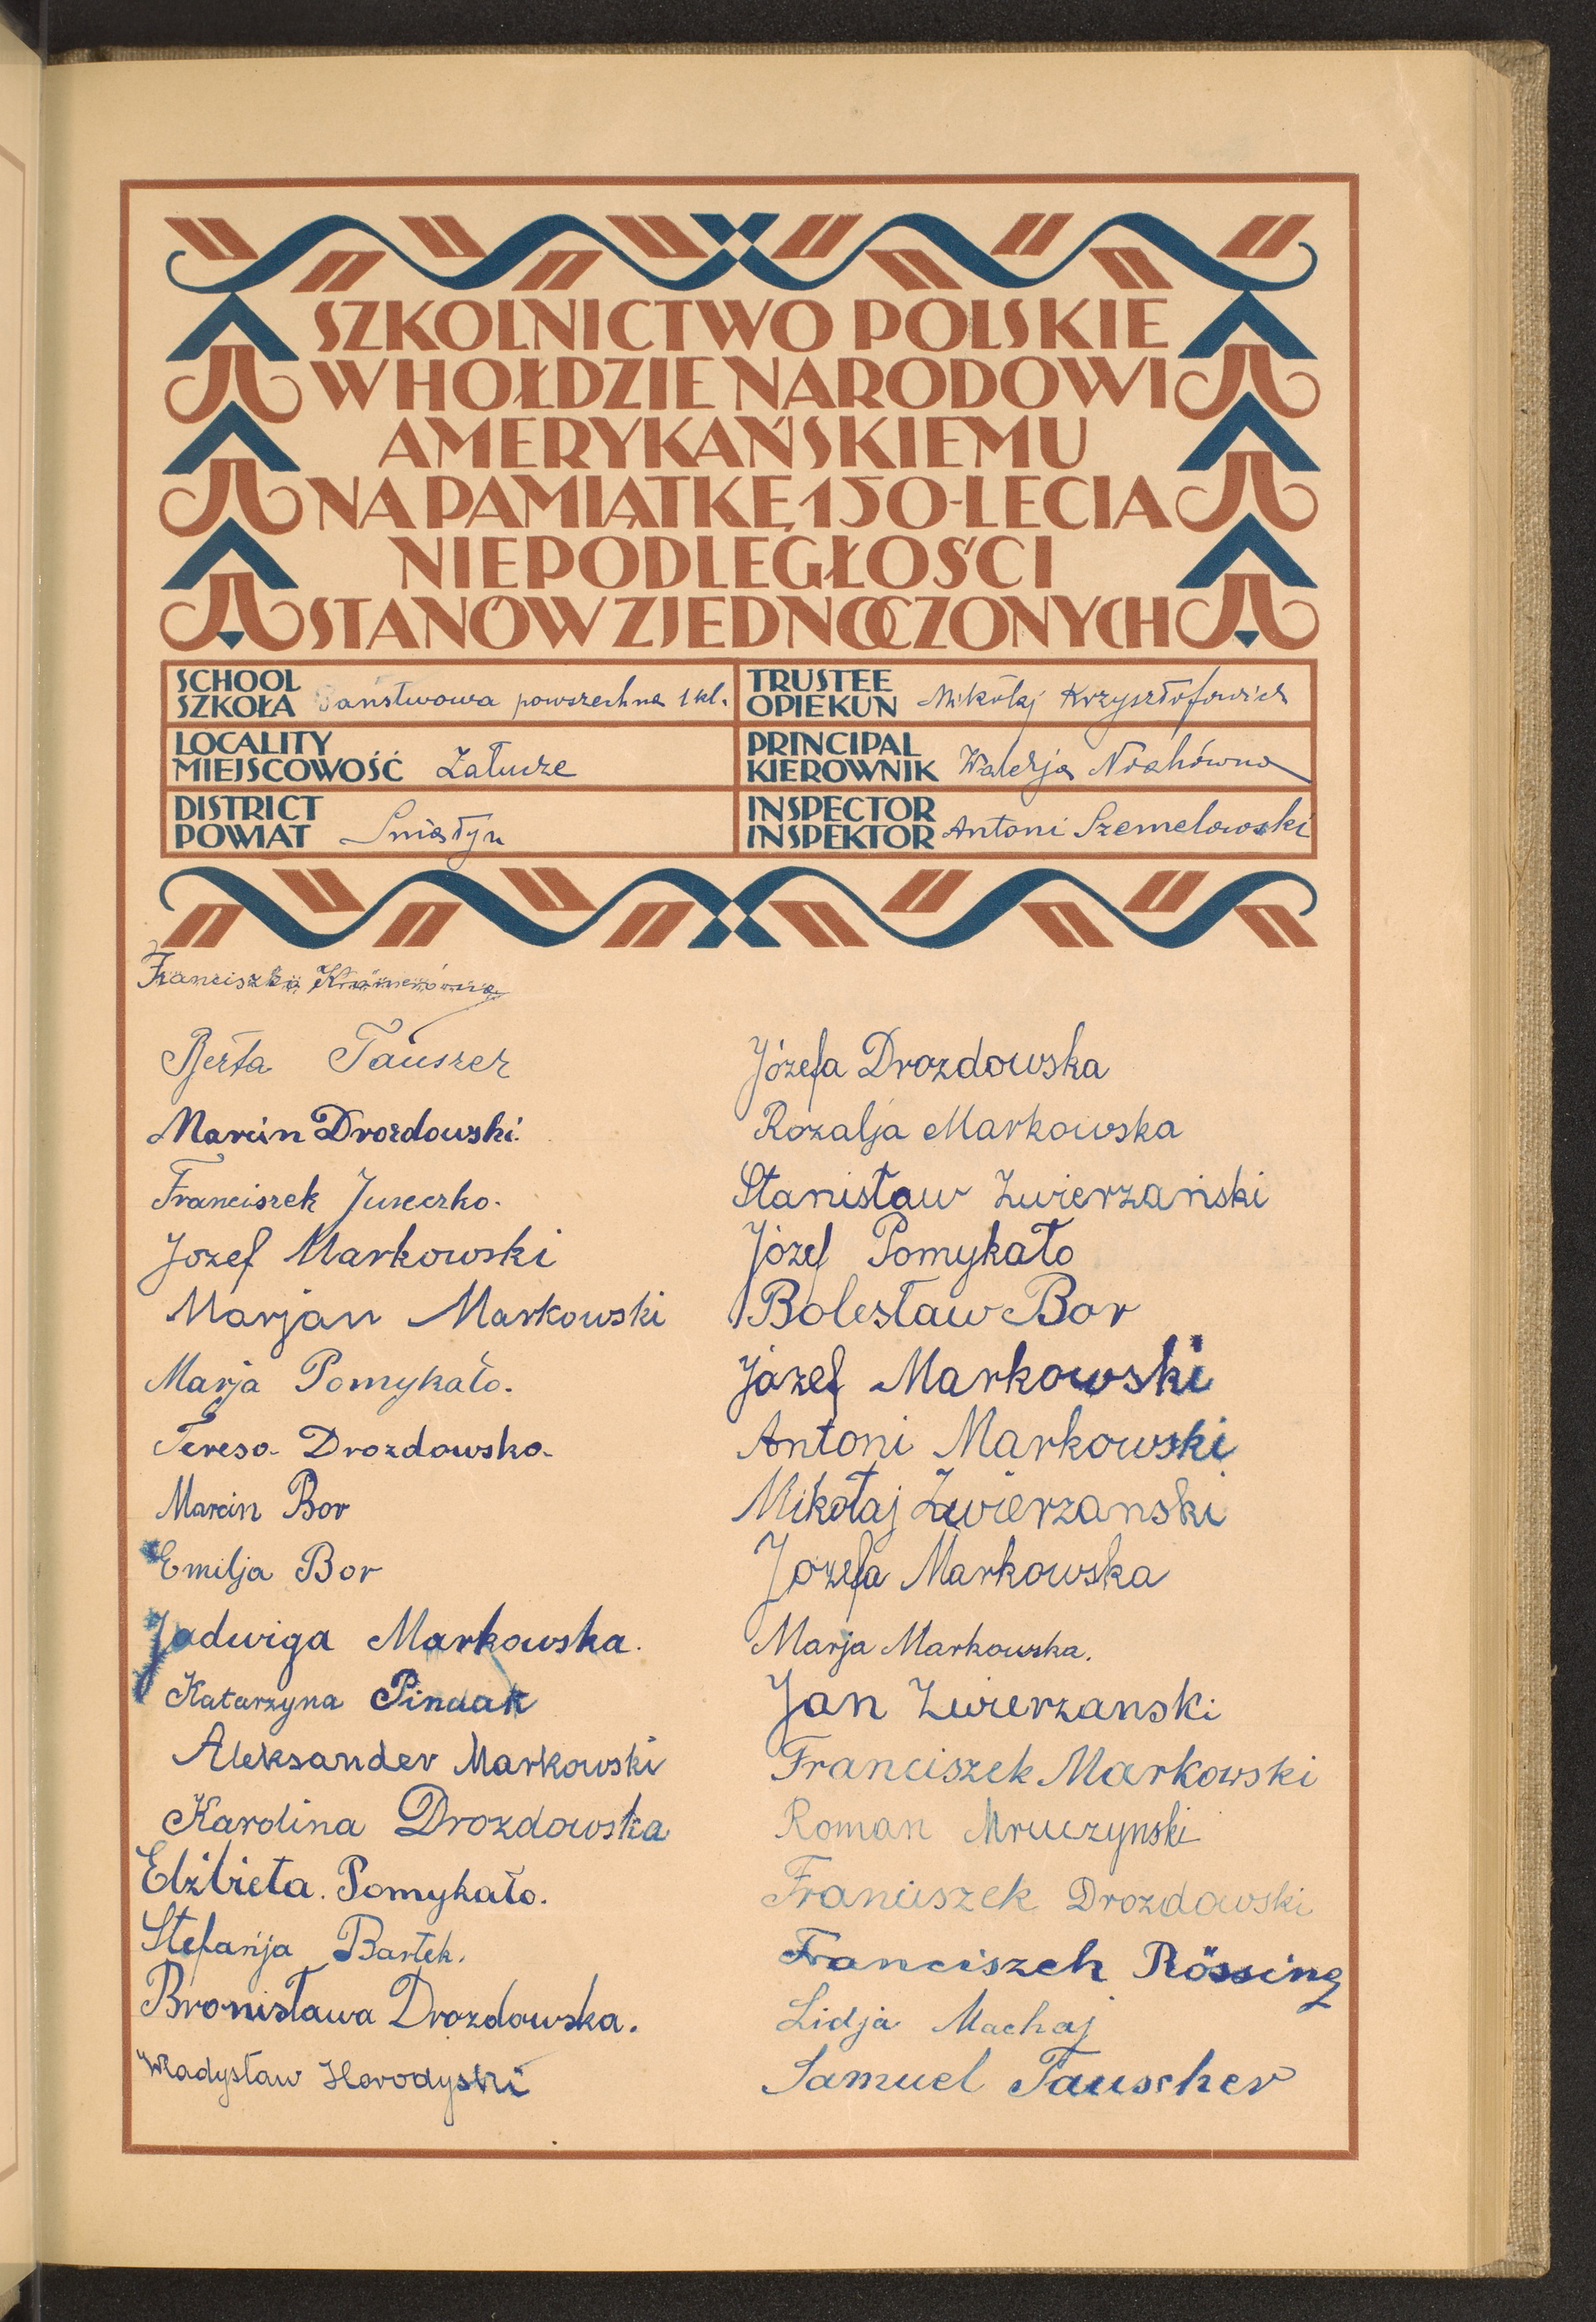 SZKOLNICTWO POLSKIE
W HOŁDZIE NARODOWI
AMERYKAŃSKIEMU
NA PAMIĄTKĘ 150-LECIA
NIEPODLEGŁOŚCI
STANÓW ZJEDNOCZONYCH
SCHOOL
SZKOŁA Państwowa powszechna 1 kl.
TRUSTEE
OPIEKUN Mikołaj Krzysztofowicz
LOCALITY
MIEJSCOWOŚĆ Załucze
PRINCIPAL
KIEROWNIK Walerja
DISTRICT
POWIAT Śniatyn
INSPECTOR
INSPEKTOR Antoni Szemelowski
Franciszka
Berta Tauszer
Marcin Drozdowski
Franciszek Jureczko.
Jozef Markowski
Marjan Markowski
Marja Pomykało.
Teresa Drozdowska
Marcin Bor
Emilja Bor
Jadwiga Markowska.
Katarzyna Pindak
Aleksander Markowski
Karolina Drozdowska
Elżbieta. Pomykało.
Stefanja Bartek.
Bronisława Drozdowska.
Władysław Horodyski
Józefa Drozdowska
Rozalja Markowska
Stanisław Zwierzański
Józef Pomykało
Bolesław Bor
Józef Markowski
Antoni Markowski
Mikołaj Zwierzanski
Jozefa Markowska
Marja Markowska.
Jan Zwierzanski
Franciszek Markowski
Roman Mruczynski
Franciszek Drozdowski
Franciszek Rössing
Lidja Machaj
Samuel Tauscher